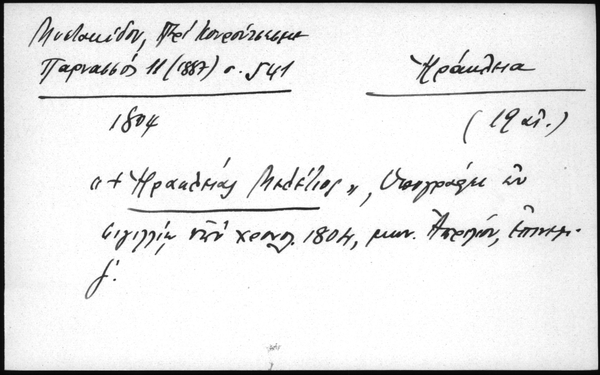 Μυστακίδου, Περὶ Κουρούτσεσμε
Παρνασσός 11 (1887) σ. 541
Ἡράκλεια
1804
(19 αἰ.)
"+ Ἡρακλείας Μελέτιος", ὑπογράφει ἐν
σιγιλλίῳ ὑπὸ χρονολ. 1804, μην. Ἀπριλίου, ἐπινεμ-
ζ΄.